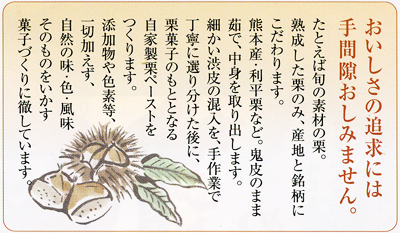 おいしさの追求には
手間隙おしみません。
たとえば旬の素材の栗。
熟成した栗のみ、産地と銘柄に
こだわります。
熊本産・利平栗など。鬼皮のまま
茹で、中身を取り出します。
細かい渋皮の混入を、手作業で
丁寧に選り分けた後に、
栗菓子のもととなる
自家製栗ペーストを
つくります。
添加物や色素等、
一切加えず、
自然の味・色・風味
そのものをいかす
菓子づくりに徹しています。